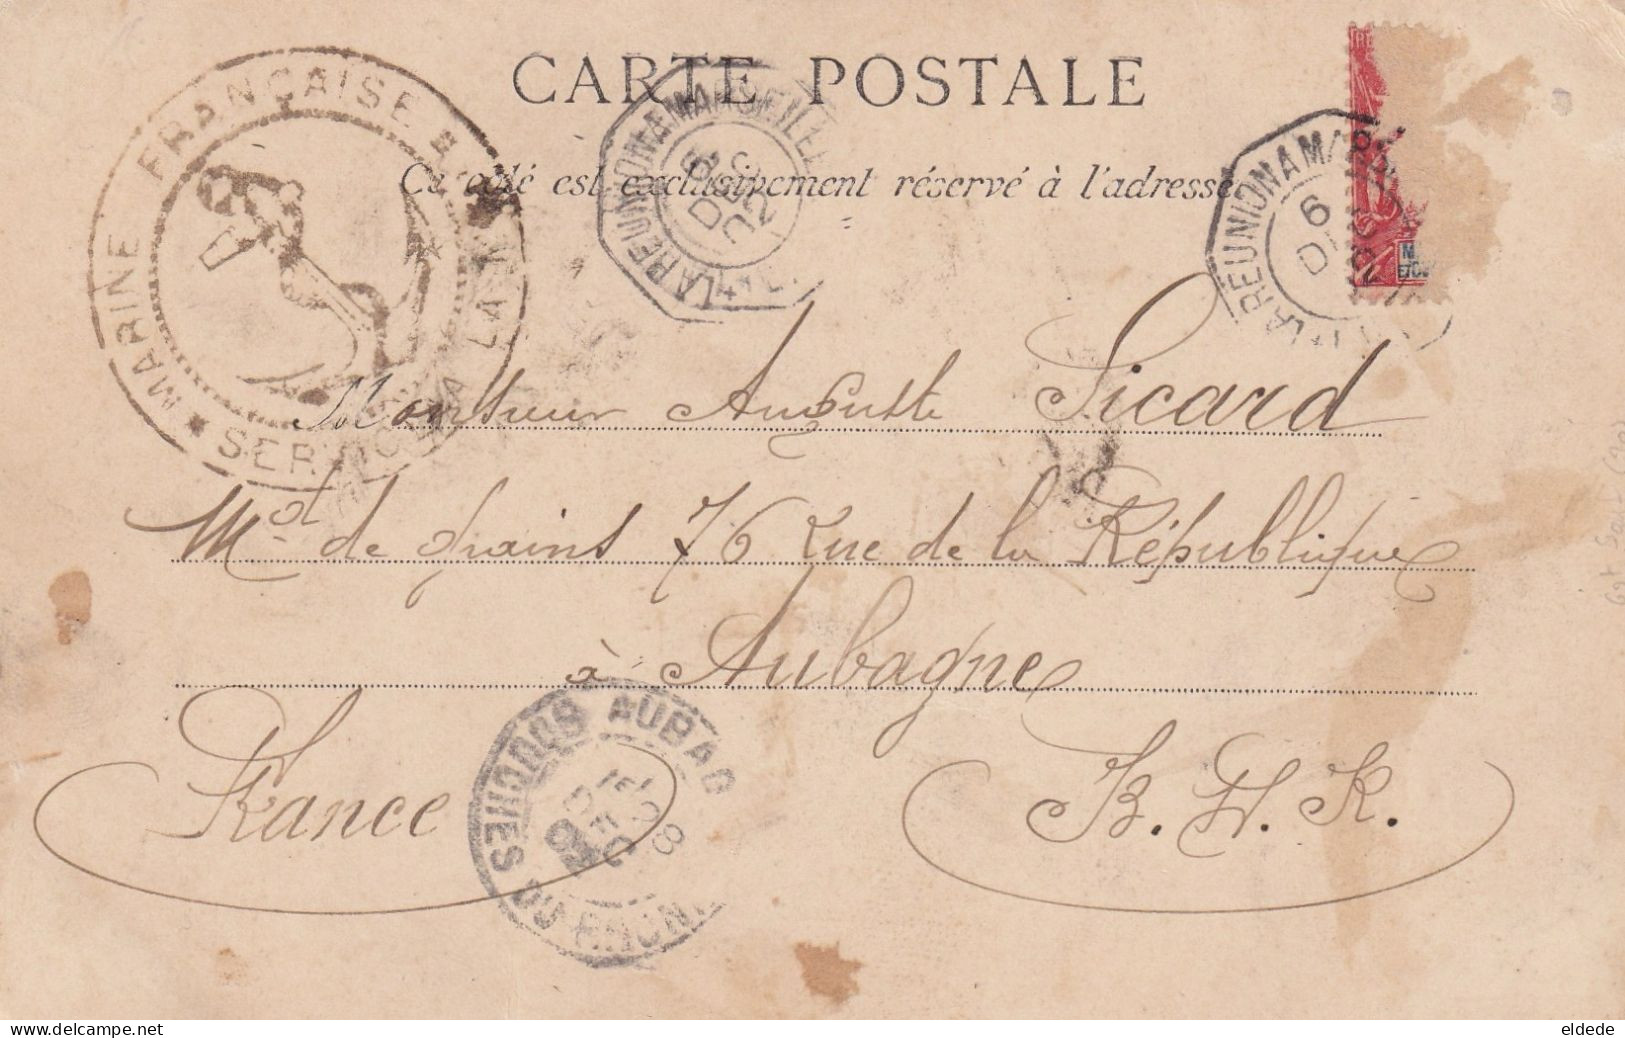 CARTE POSTALE
Ce côté est exclusivement réservé à l'adresse
MARINE FRANÇAISE
SERVICE A LA MER
LA REUNION A MARSEILLE
LA REUNION A MAR
6
DEC
Monsieur Auguste Sicard
Md. de grains 76 Rue de la République
à Aubagne
France
B. d. R.
AUBAG
BOUCHES DU RHONE
delcampe.net
eldede